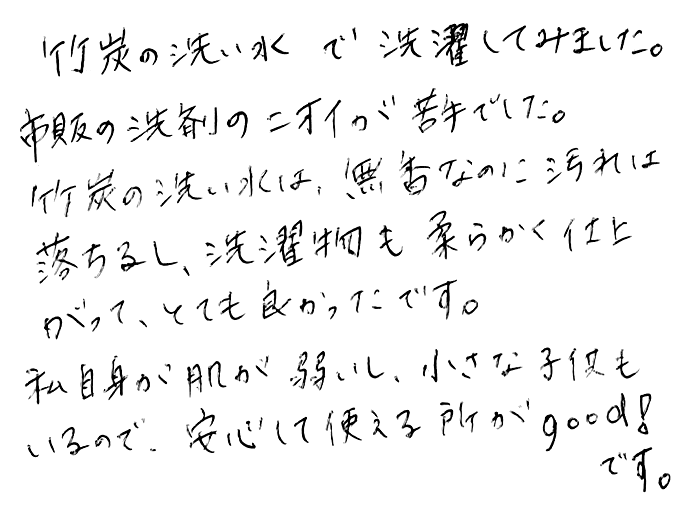 竹炭の洗い水で洗濯してみました。
市販の洗剤のニオイが苦手でした。
竹炭の洗い水は、無香なのに汚れは
落ちるし、洗濯物も柔らかく仕上
がって、とても良かったです。
私自身が肌が弱いし、小さな子供も
いるので、安心して使える所がgood!
です。